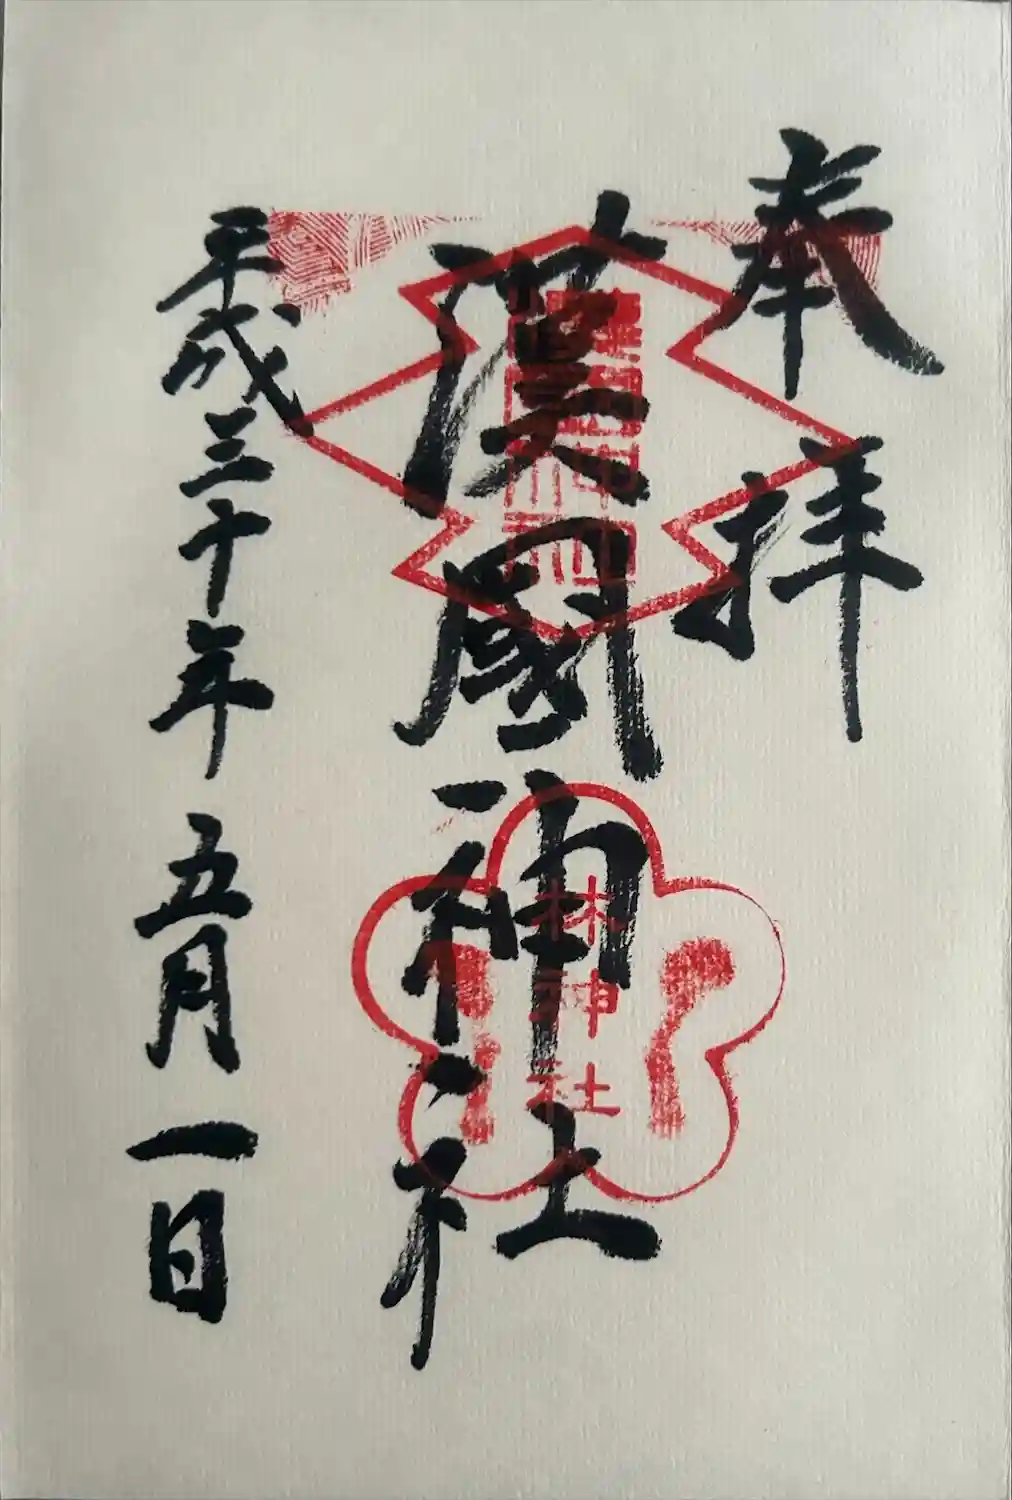 奉拝
漢國神社
林神社
平成三十年五月一日